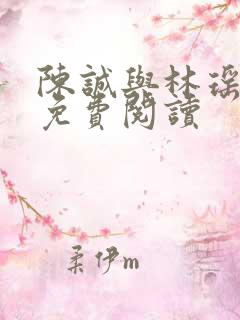 陳誠與林瑤
免費閱讀
柔伊m